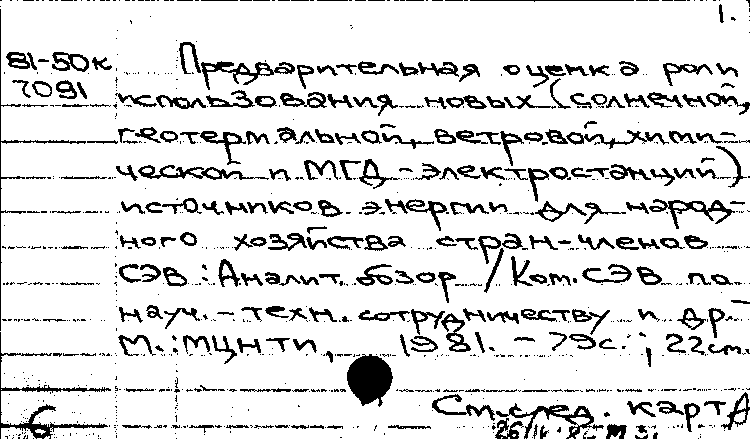 1.
81-50к Предварительная оценка роли
7091 использования новых (солнечной,
геотермальной, ветровой, хими-
ческой и МГД - электростанций)
источников энергии для народ-
ного хозяйства стран-членов
СЭВ : Аналит. обзор / Ком. СЭВ по
науч. - техн. сотрудничеству и др. -
М. : МЦНТИ, 1981. - 79с. ; 22см.
См. след. карт
6